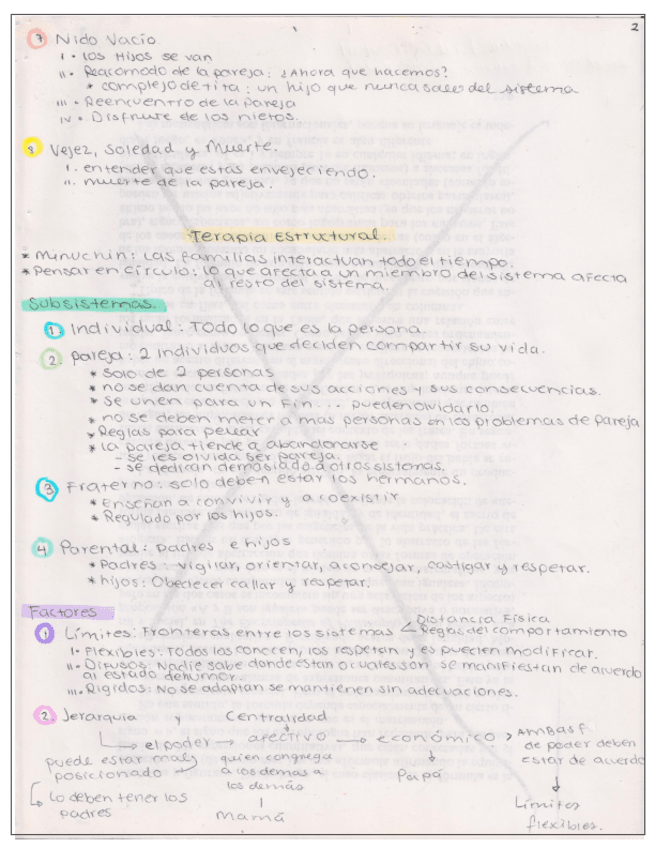 2
7 Nido Vacío.
I. los Hijos se van
II. Reacomodo de la pareja: ¿Ahora que hacemos?
* complejo de tita: un hijo que nunca sale del sistema
III. Reencuentro de la pareja
IV. Disfrute de los nietos.
8 Vejez, soledad y Muerte.
I. entender que estás envejeciendo.
II. muerte de la pareja.
Terapia Estructural.
* Minuchin: Las familias interactuan todo el tiempo.
* Pensar en círculo: lo que afecta a un miembro del sistema afecta
al resto del sistema.
Subsistemas.
1. Individual: Todo lo que es la persona.
2. pareja: 2 individuos que deciden compartir su vida.
* solo de 2 personas
* no se dan cuenta de sus acciones y sus consecuencias.
* se unen para un fin... pueden olvidarlo.
* no se deben meter a mas personas en los problemas de pareja
* Reglas para pelear
* la pareja tiende a abandonarse
- se les olvida ser pareja.
- se dedican demasiado a otros sistemas.
3 Fraterno: solo deben estar los hermanos.
* Enseñan a convivir y a coexistir
* Regulado por los hijos.
4 Parental: padres e hijos
* Padres: vigilar, orientar, aconsejar, castigar y respetar.
* hijos: Obedecer callar y respetar.
Factores
1 Límites: Fronteras entre los sistemas < Distancia Física
Reglas del comportamiento
I. Flexibles: Todos los conocen, los respetan y es pueden modificar.
II. Difusos: Nadie sabe donde están o cuales son se manifiestan de acuerdo
al estado de humor.
III. Rigidos: No se adaptan se mantienen sin adecuaciones.
2. Jerarquía y Centralidad
el poder → afectivo → económico > Ambas f.
de poder deben
estar de acuerdo
puede estar mal
posicionado
quien congrega
a los demas a
los demás
Papá
Lo deben tener los
padres
mamá
Límites
flexibles.